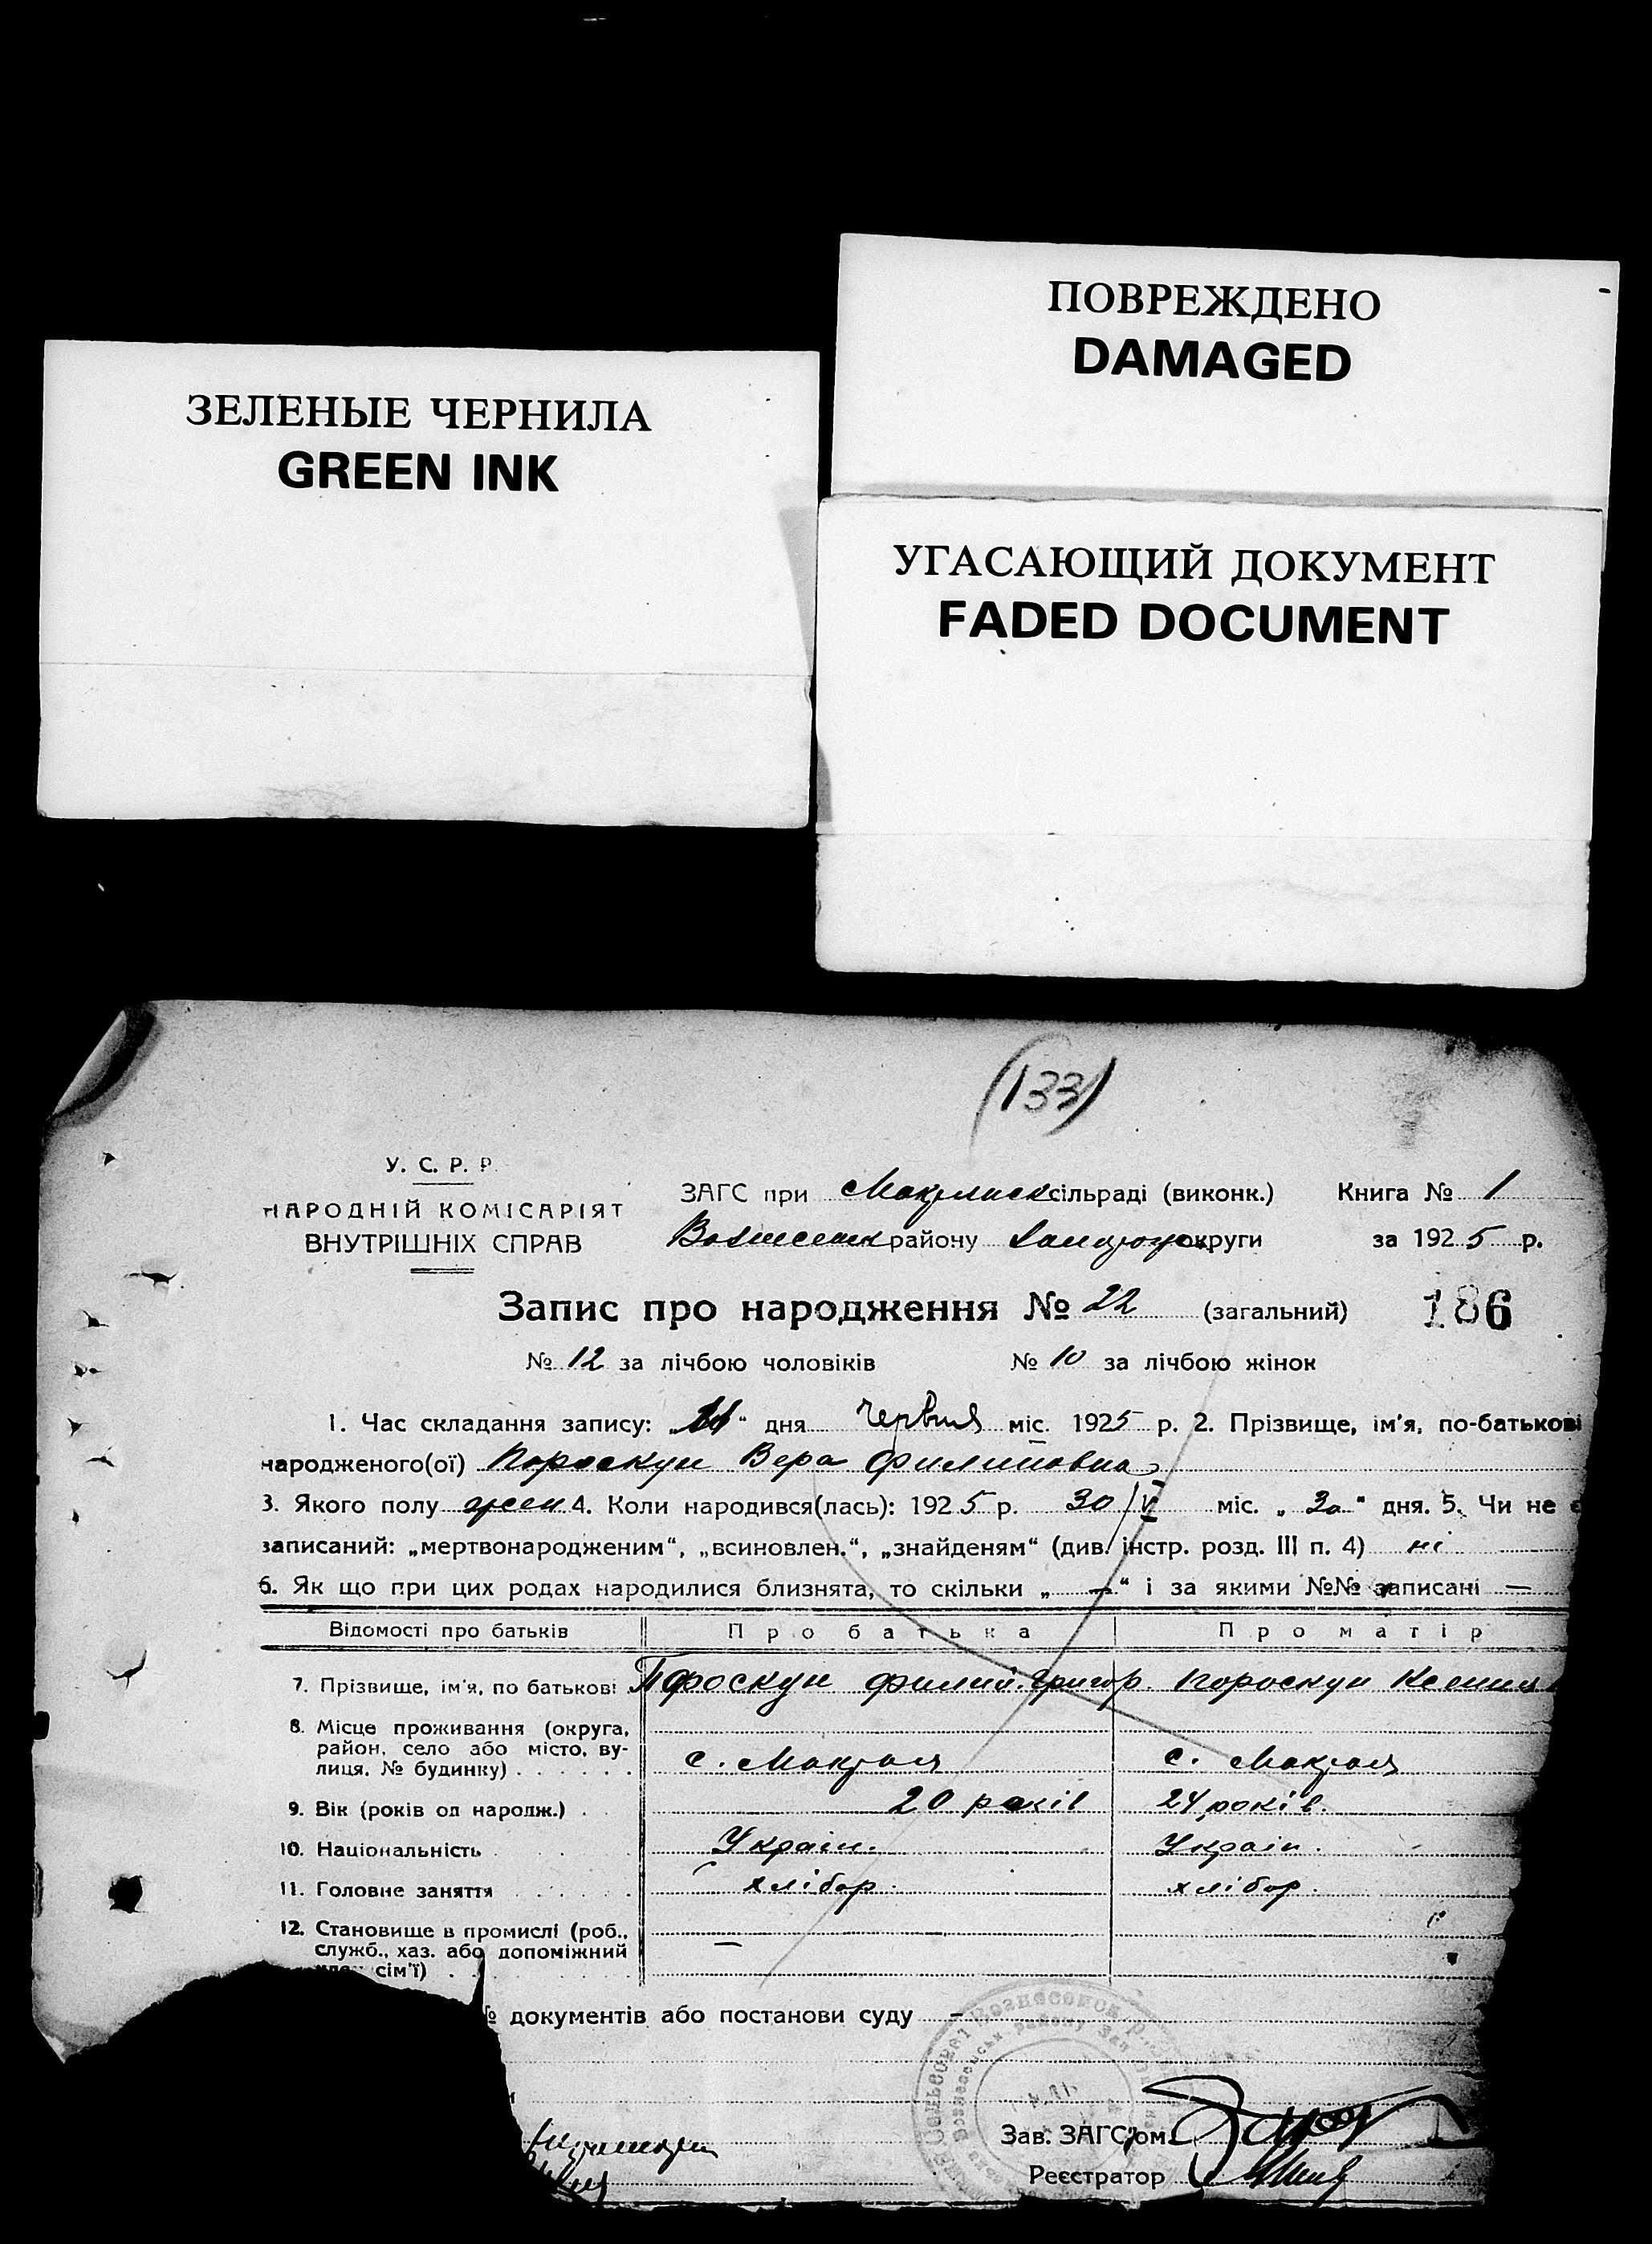 ПОВРЕЖДЕНО
DAMAGED
ЗЕЛЕНЫЕ ЧЕРНИЛА
GREEN INK
УГАСАЮЩИЙ ДОКУМЕНТ
FADED DOCUMENT
(133)
У. С. Р. Р.
НАРОДНІЙ КОМІСАРІЯТ
ВНУТРІШНІХ СПРАВ
ЗАГС при сільраді (виконк.) Книга № 1
району округи за 1925 р.
Запис про народження № 22 (загальний) 186
№ 12 за лічбою чоловіків № 10 за лічбою жінок
1. Час складання запису: „ “ дня червня міс. 1925 р. 2. Прізвище, ім'я, по-батькові
народженого(ої) Пороскун Вера Филиповна
3. Якого полу жен 4. Коли народився(лась): 1925 р. 30/V міс. „30“ дня. 5. Чи не є
записаний: „мертвонародженим“, „всиновлен.“, „знайденям“ (див. інстр. розд. III п. 4) ні
6. Як що при цих родах народилися близнята, то скільки „—“ і за якими №№ записані —
Відомості про батьків Про батька Про матір
7. Прізвище, ім'я, по батькові Пороскун Филип. Григор. Пороскун Ксения
8. Місце проживання (округа,
район, село або місто, ву-
лиця, № будинку) с. с.
9. Вік (років од народж.) 20 років 24 років.
10. Національність Україн. Україн.
11. Головне заняття хлібор. хлібор.
12. Становище в промислі (роб.,
служб., хаз. або допоміжний —
сім'ї)
№ документів або постанови суду —
Зав. ЗАГС'ом
Реєстратор